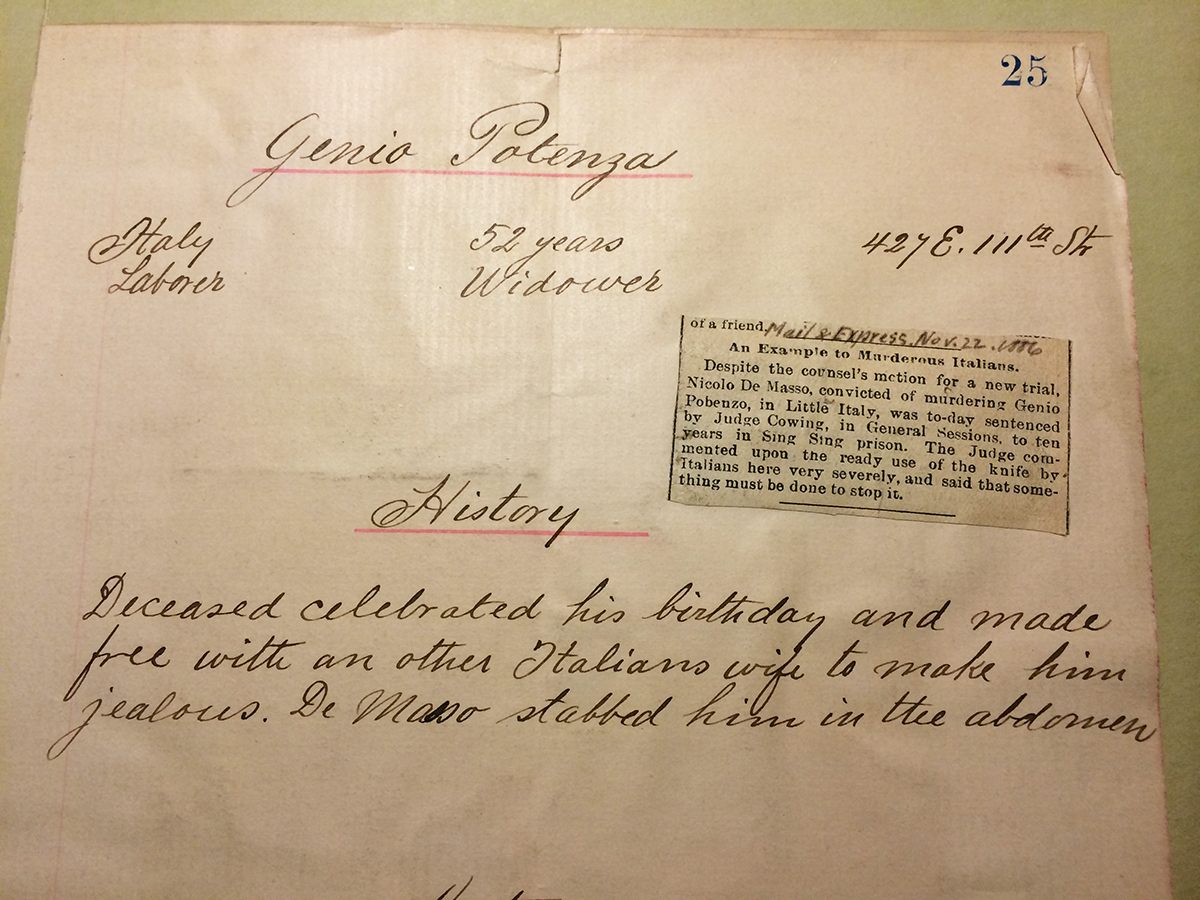 25
Genio Potenza
Italy 52 years 427 E. 111th St
Laborer Widower
of a friend. Mail & Express, Nov. 22. 1886
An Example to Murderous Italians.
Despite the counsel's motion for a new trial,
Nicolo De Masso, convicted of murdering Genio
Pobenzo, in Little Italy, was to-day sentenced
by Judge Cowing, in General Sessions, to ten
years in Sing Sing prison. The Judge com-
mented upon the ready use of the knife by
Italians here very severely, and said that some-
thing must be done to stop it.
History
Deceased celebrated his birthday and made
free with an other Italians wife to make him
jealous. De Masso stabbed him in the abdomen